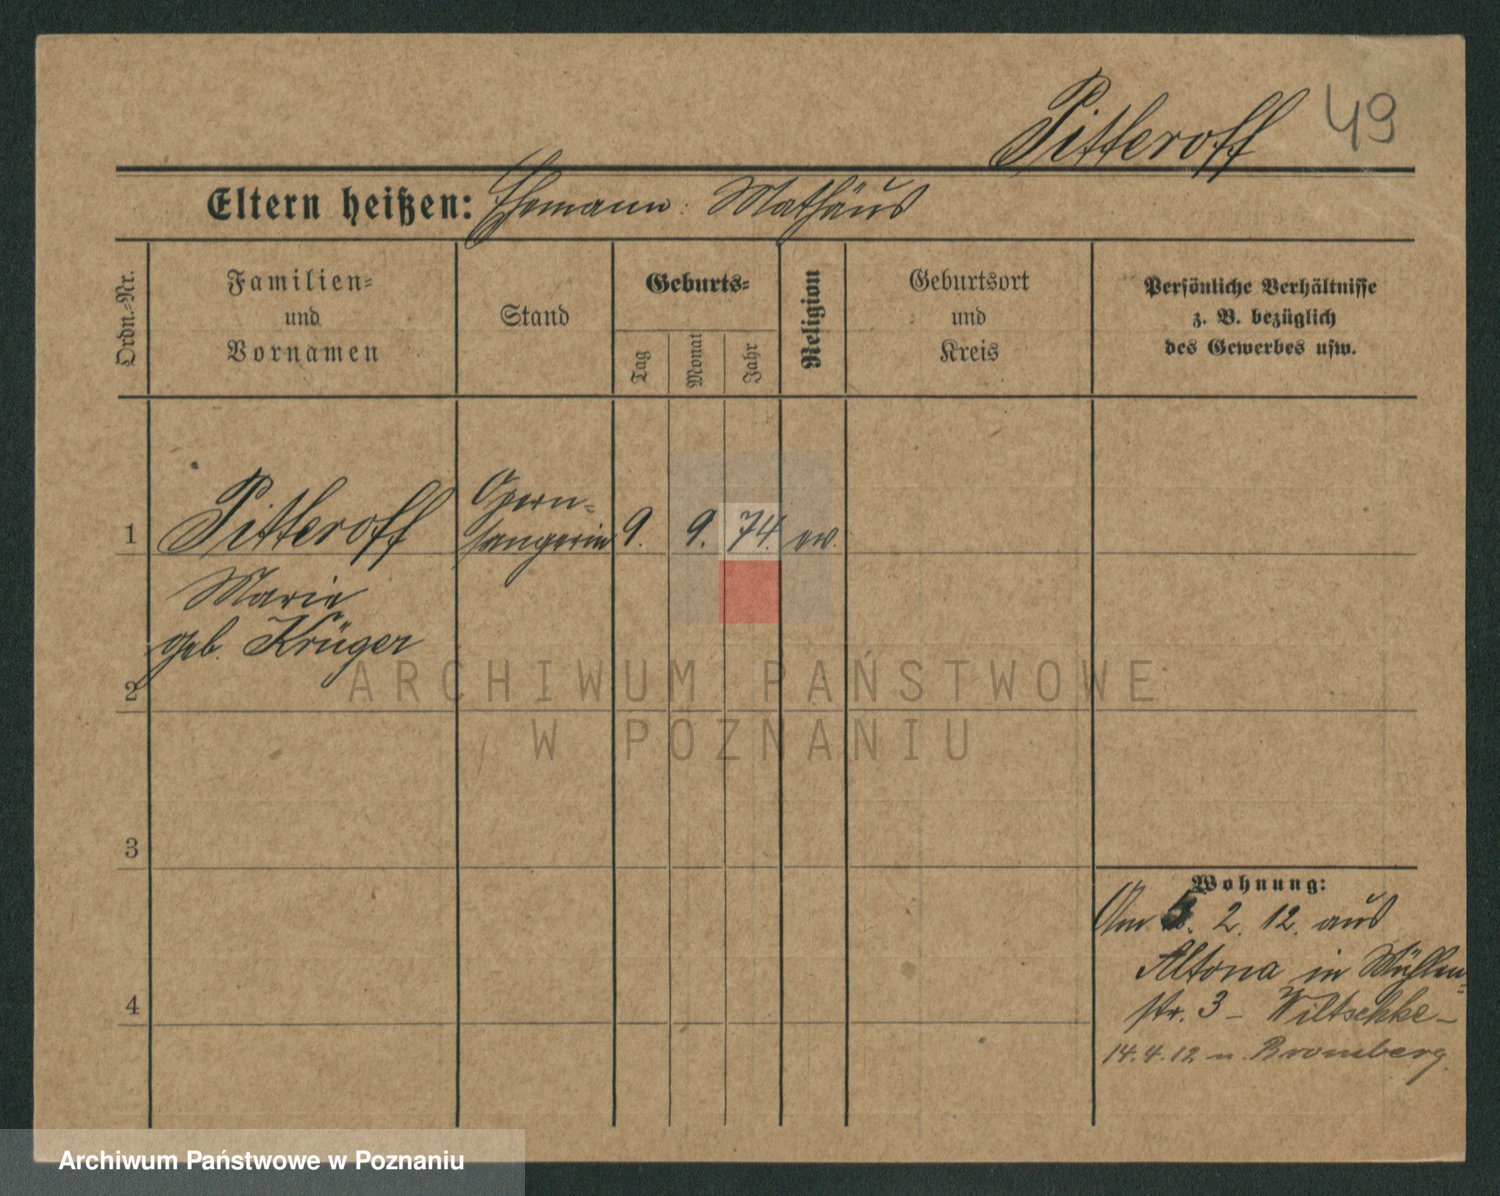 Pitteroff 49
Eltern heißen: Ehemann: Mathäus
Ordn.-Nr.
Familien-
und
Vornamen
Stand
Geburts-
Tag
Monat
Jahr
Religion
Geburtsort
und
Kreis
Persönliche Verhältnisse
z. B. bezüglich
des Gewerbes usw.
1 Pitteroff Opern-
sängerin 9. 9. 74. ev.
Marie
geb. Krüger
2
3
4
Wohnung:
Am 5. 2. 12. aus
Altona in Mühlen-
str. 3 - Wiltschke -
14.4.12 n. Bromberg
ARCHIWUM PAŃSTWOWE
W POZNANIU
Archiwum Państwowe w Poznaniu